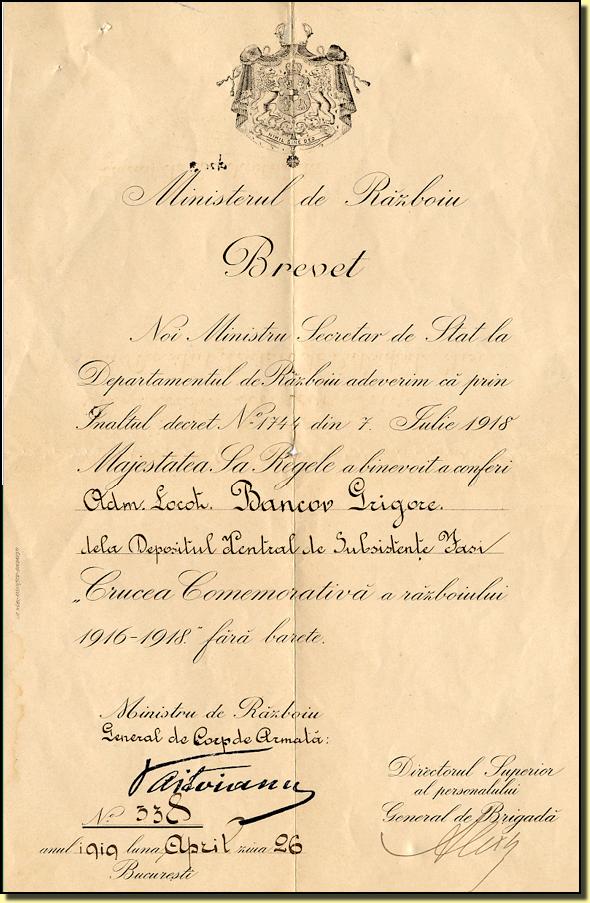 NIHIL SINE DEO
Ministerul de Războiu
Brevet
Noi Ministru Secretar de Stat la
Departamentul de Războiu adeverim că prin
Inaltul decret No. 1744 din 7. Iulie 1918
Majestatea Sa Regele a binevoit a conferi
Adm. Locot. Bancov Grigore.
dela Depositul Central de Subsistențe Iasi
„Crucea Comemorativă a războiului
1916-1918." fără barete.
Ministru de Războiu
General de Corp de Armată:
Vaitoianu
No 338
anul 1919 luna April ziua 26
București
Directorul Superior
al personalului
General de Brigadă